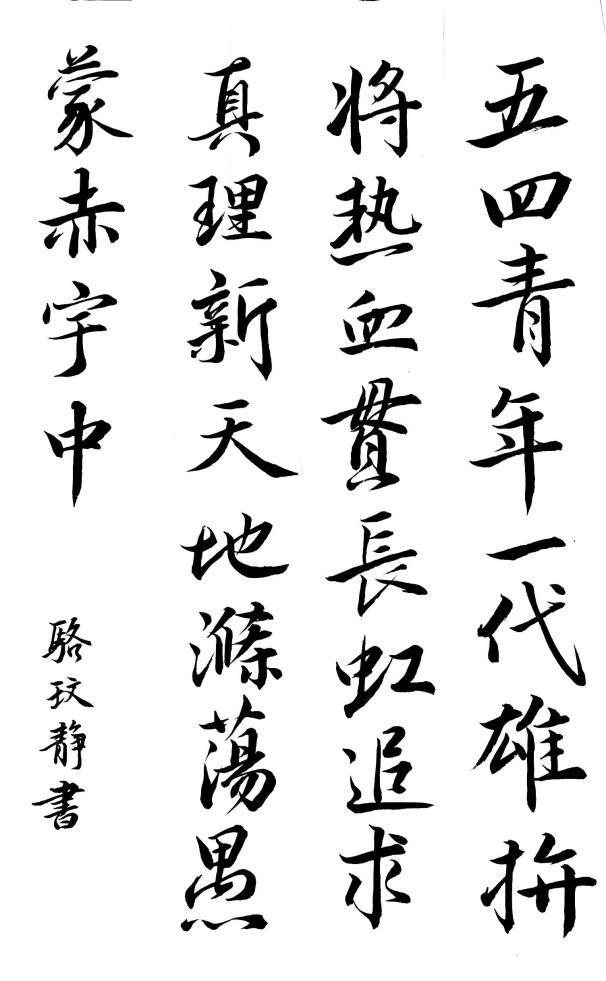 五四青年一代雄拚
将热血貫長虹追求
真理新天地滌蕩愚
蒙赤宇中
駱玟静書